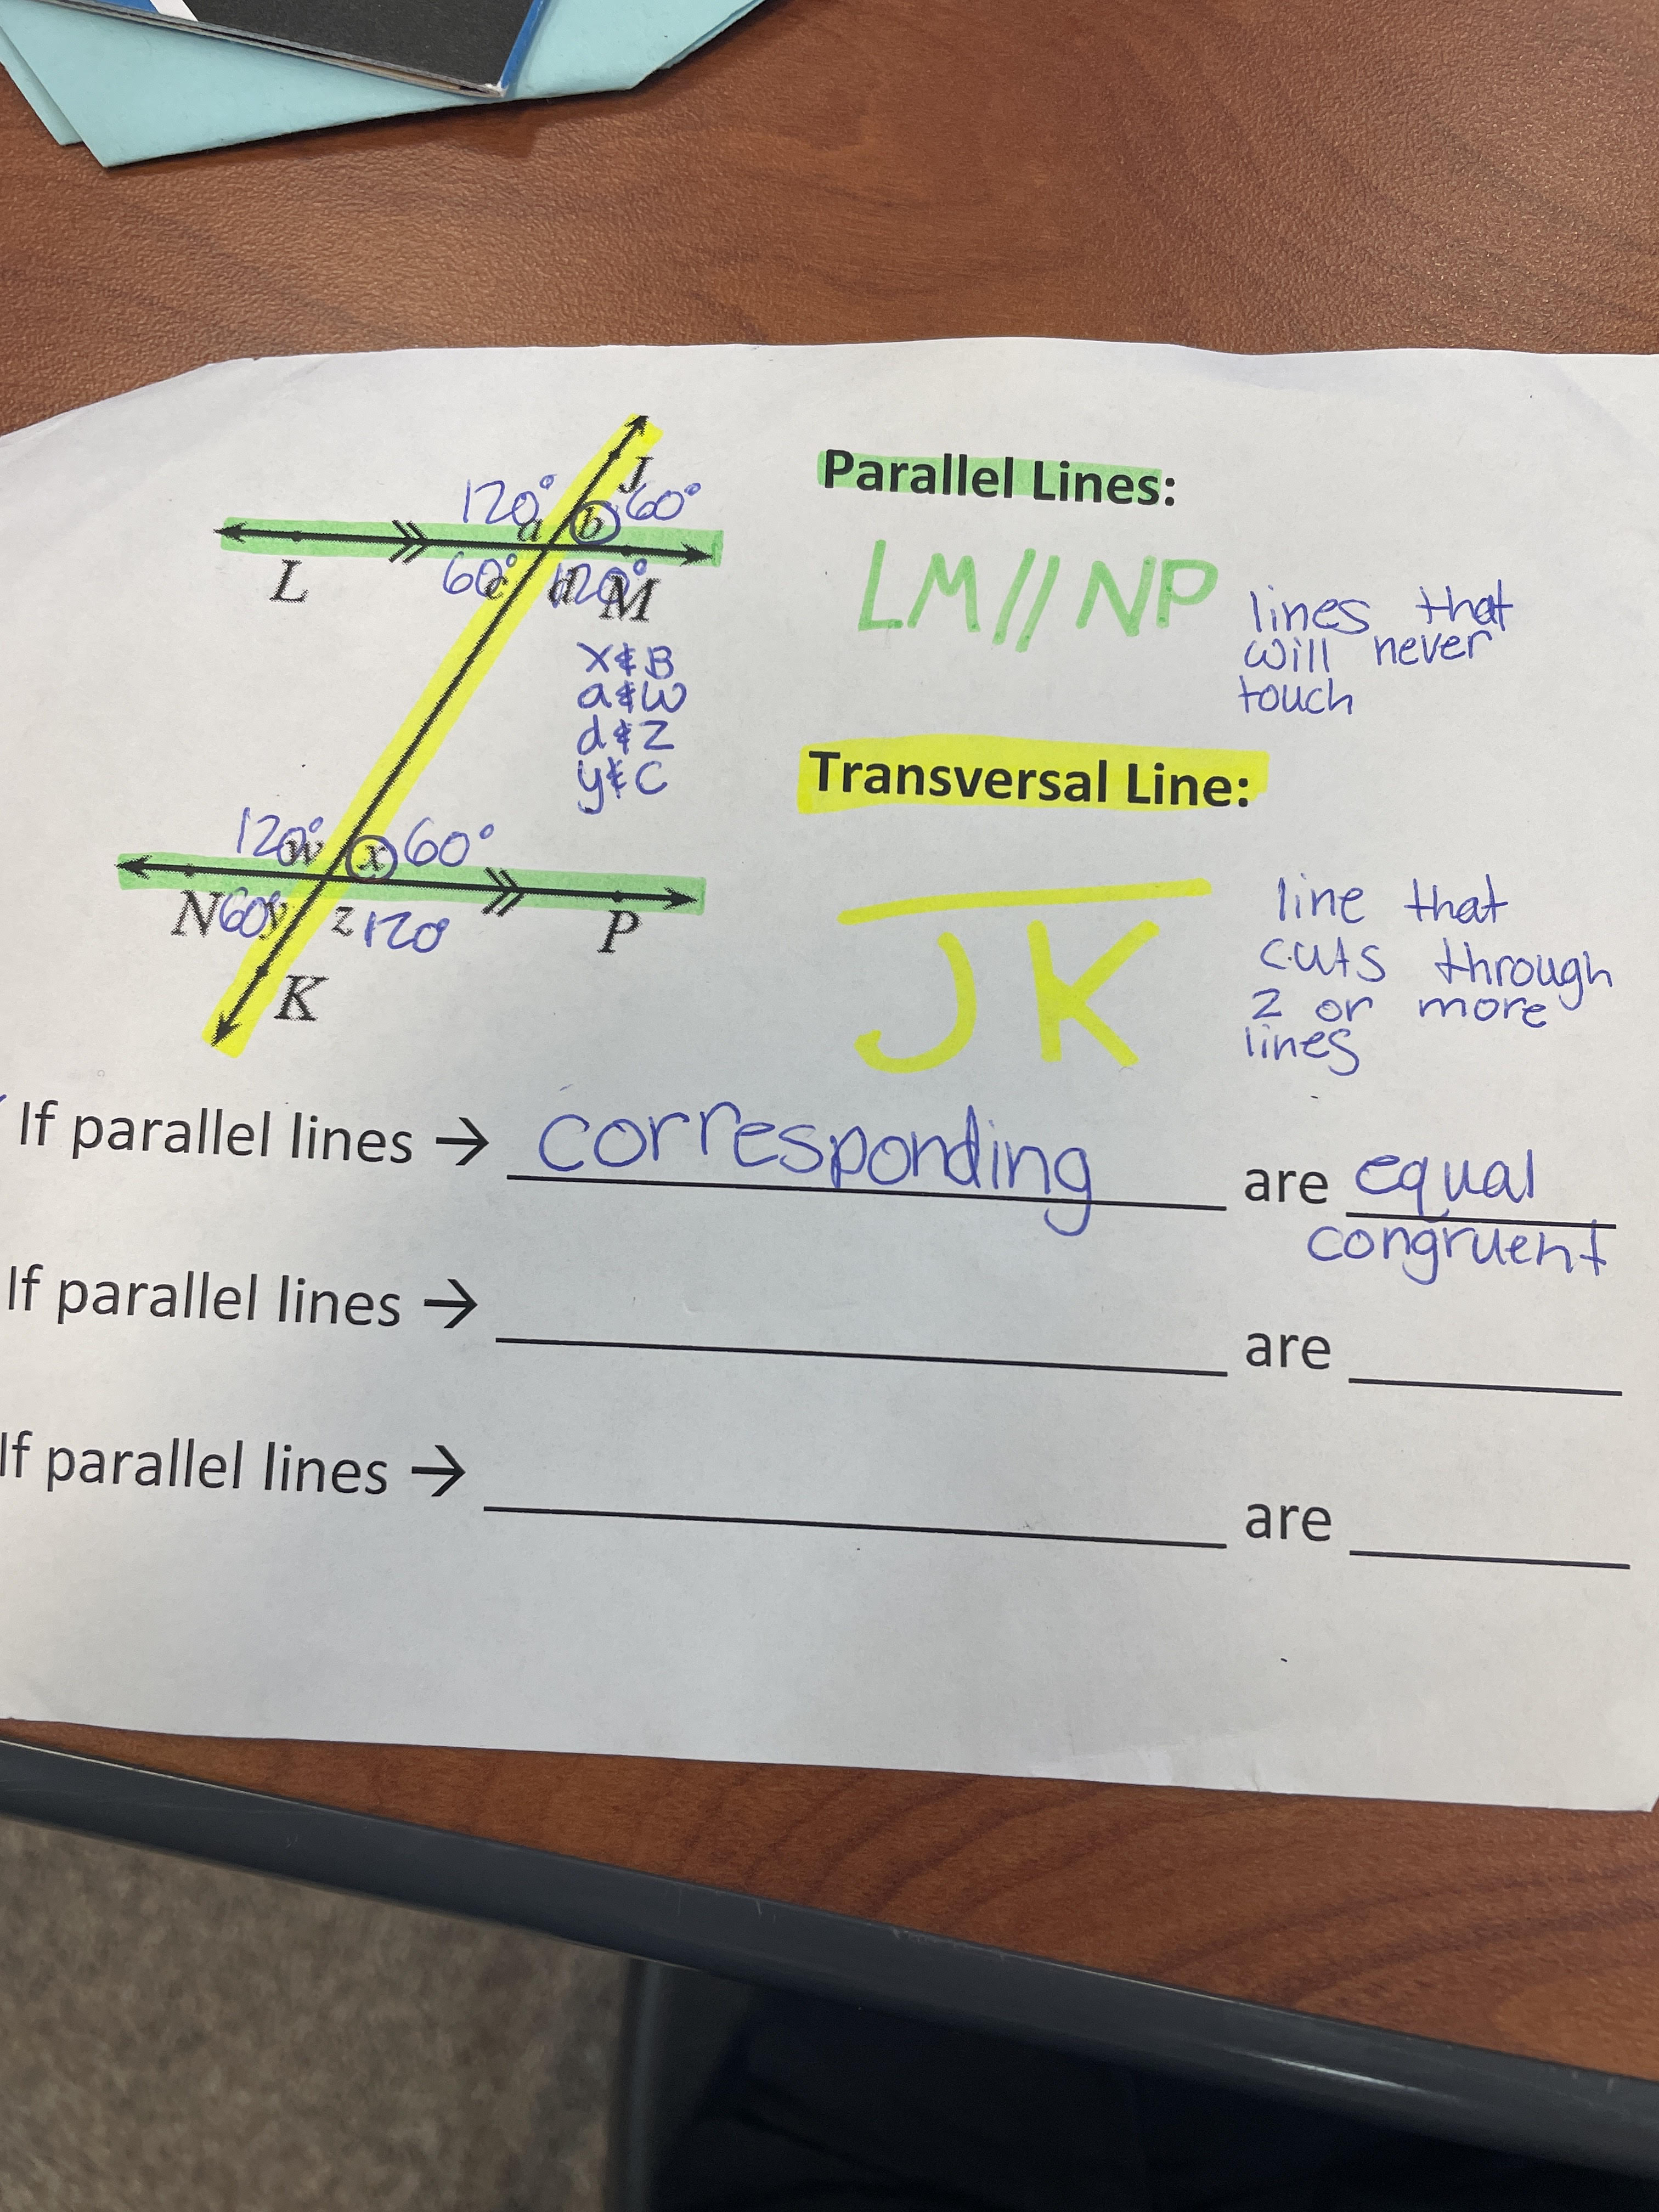 J
120° a b 60°
L 60° c d 120° M
x & B
a & w
d & z
y & c
120° w x 60°
N 60° y z 120° P
K
Parallel Lines:
LM // NP
lines that
will never
touch
Transversal Line:
JK
line that
cuts through
2 or more
lines
If parallel lines → corresponding are equal
congruent
If parallel lines → are
If parallel lines → are